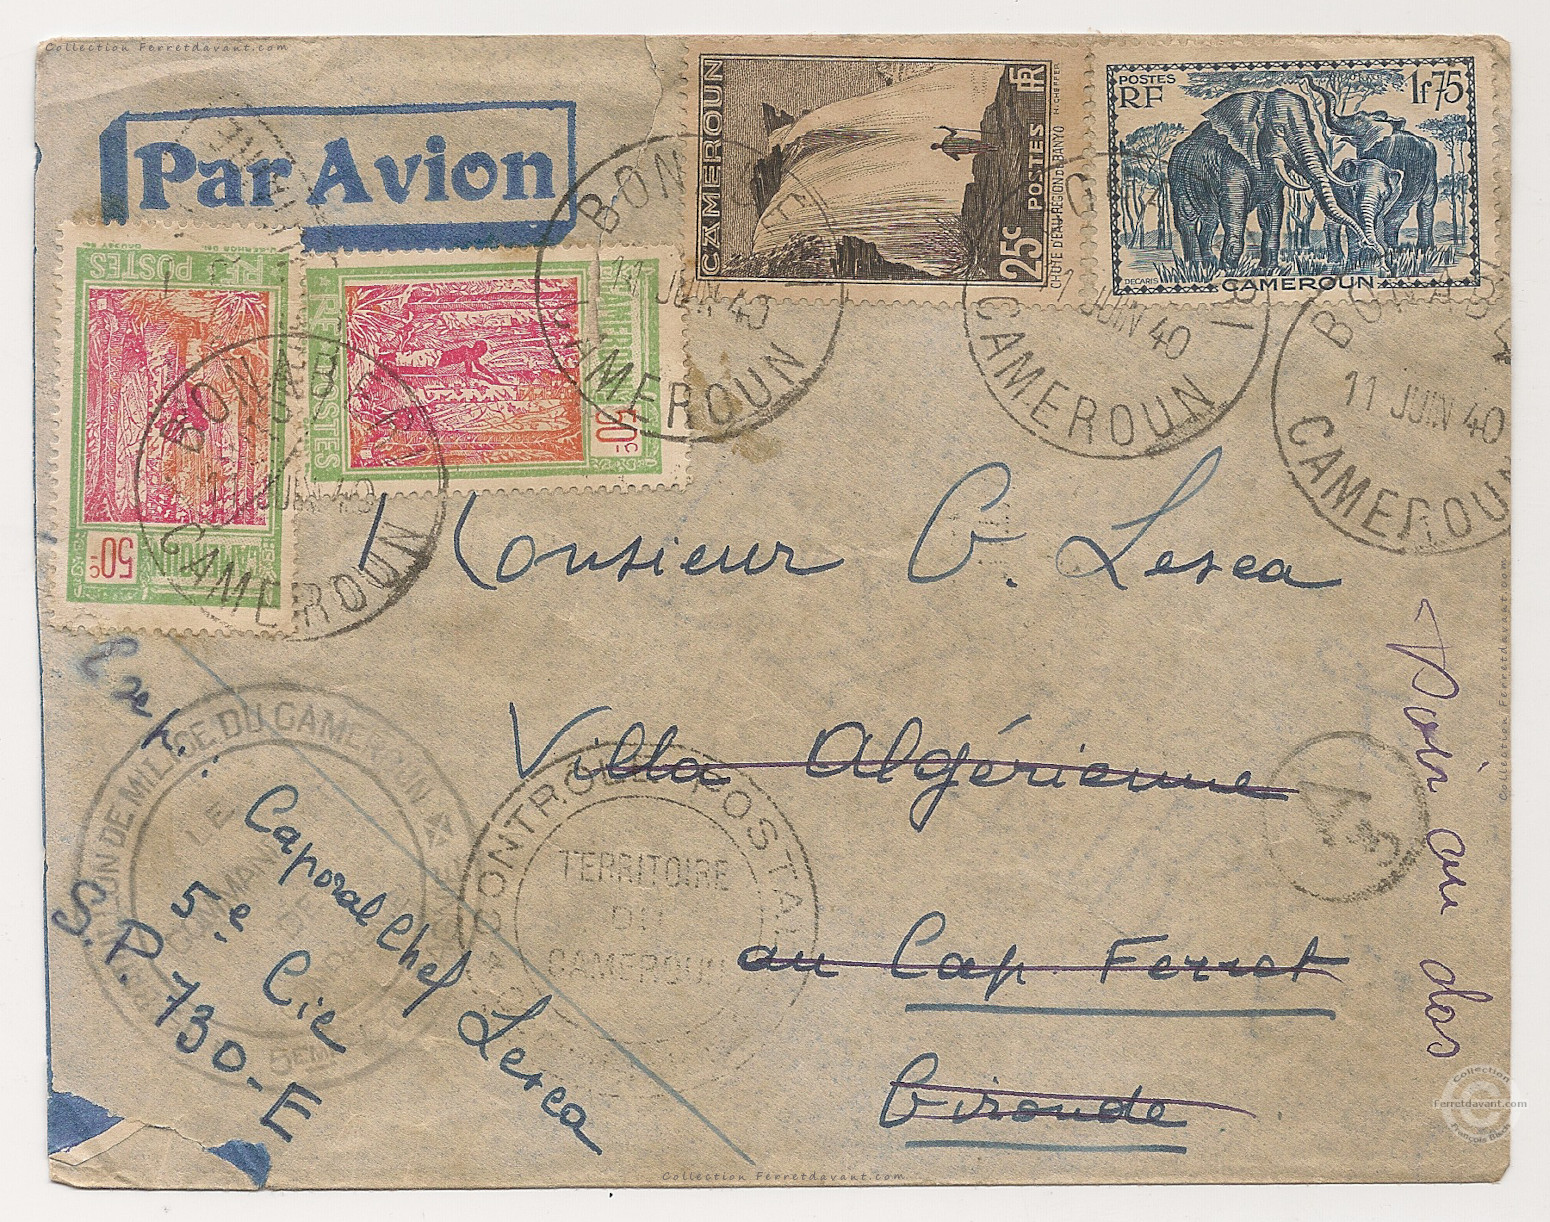 Collection Ferretdavant.com
Par Avion
CAMEROUN
RF
25c POSTES
CHUTE D'EAU-RÉGION DE BANYO
POSTES
RF
1f75
DECARIS
CAMEROUN
RF
POSTES
50c
CAMEROUN
RF
POSTES
50c
CAMEROUN
BONABERI
11 JUIN 40
CAMEROUN
BONABERI
11 JUIN 40
CAMEROUN
11 JUIN 40
CAMEROUN
BONABERI
11 JUIN 40
CAMEROUN
Monsieur G. Lesca
Villa Algérienne
au Cap Ferret
Gironde
Voir au dos
Caporal Chef Lesca
5e Cie
S.P. 730-E
DE MILICE DU CAMEROUN
LE
COMMANDANT
DE
CONTROLE POSTAL
TERRITOIRE
DU
CAMEROUN
Collection Ferretdavant.com
Collection
ferretdavant.com
Collection Ferretdavant.com